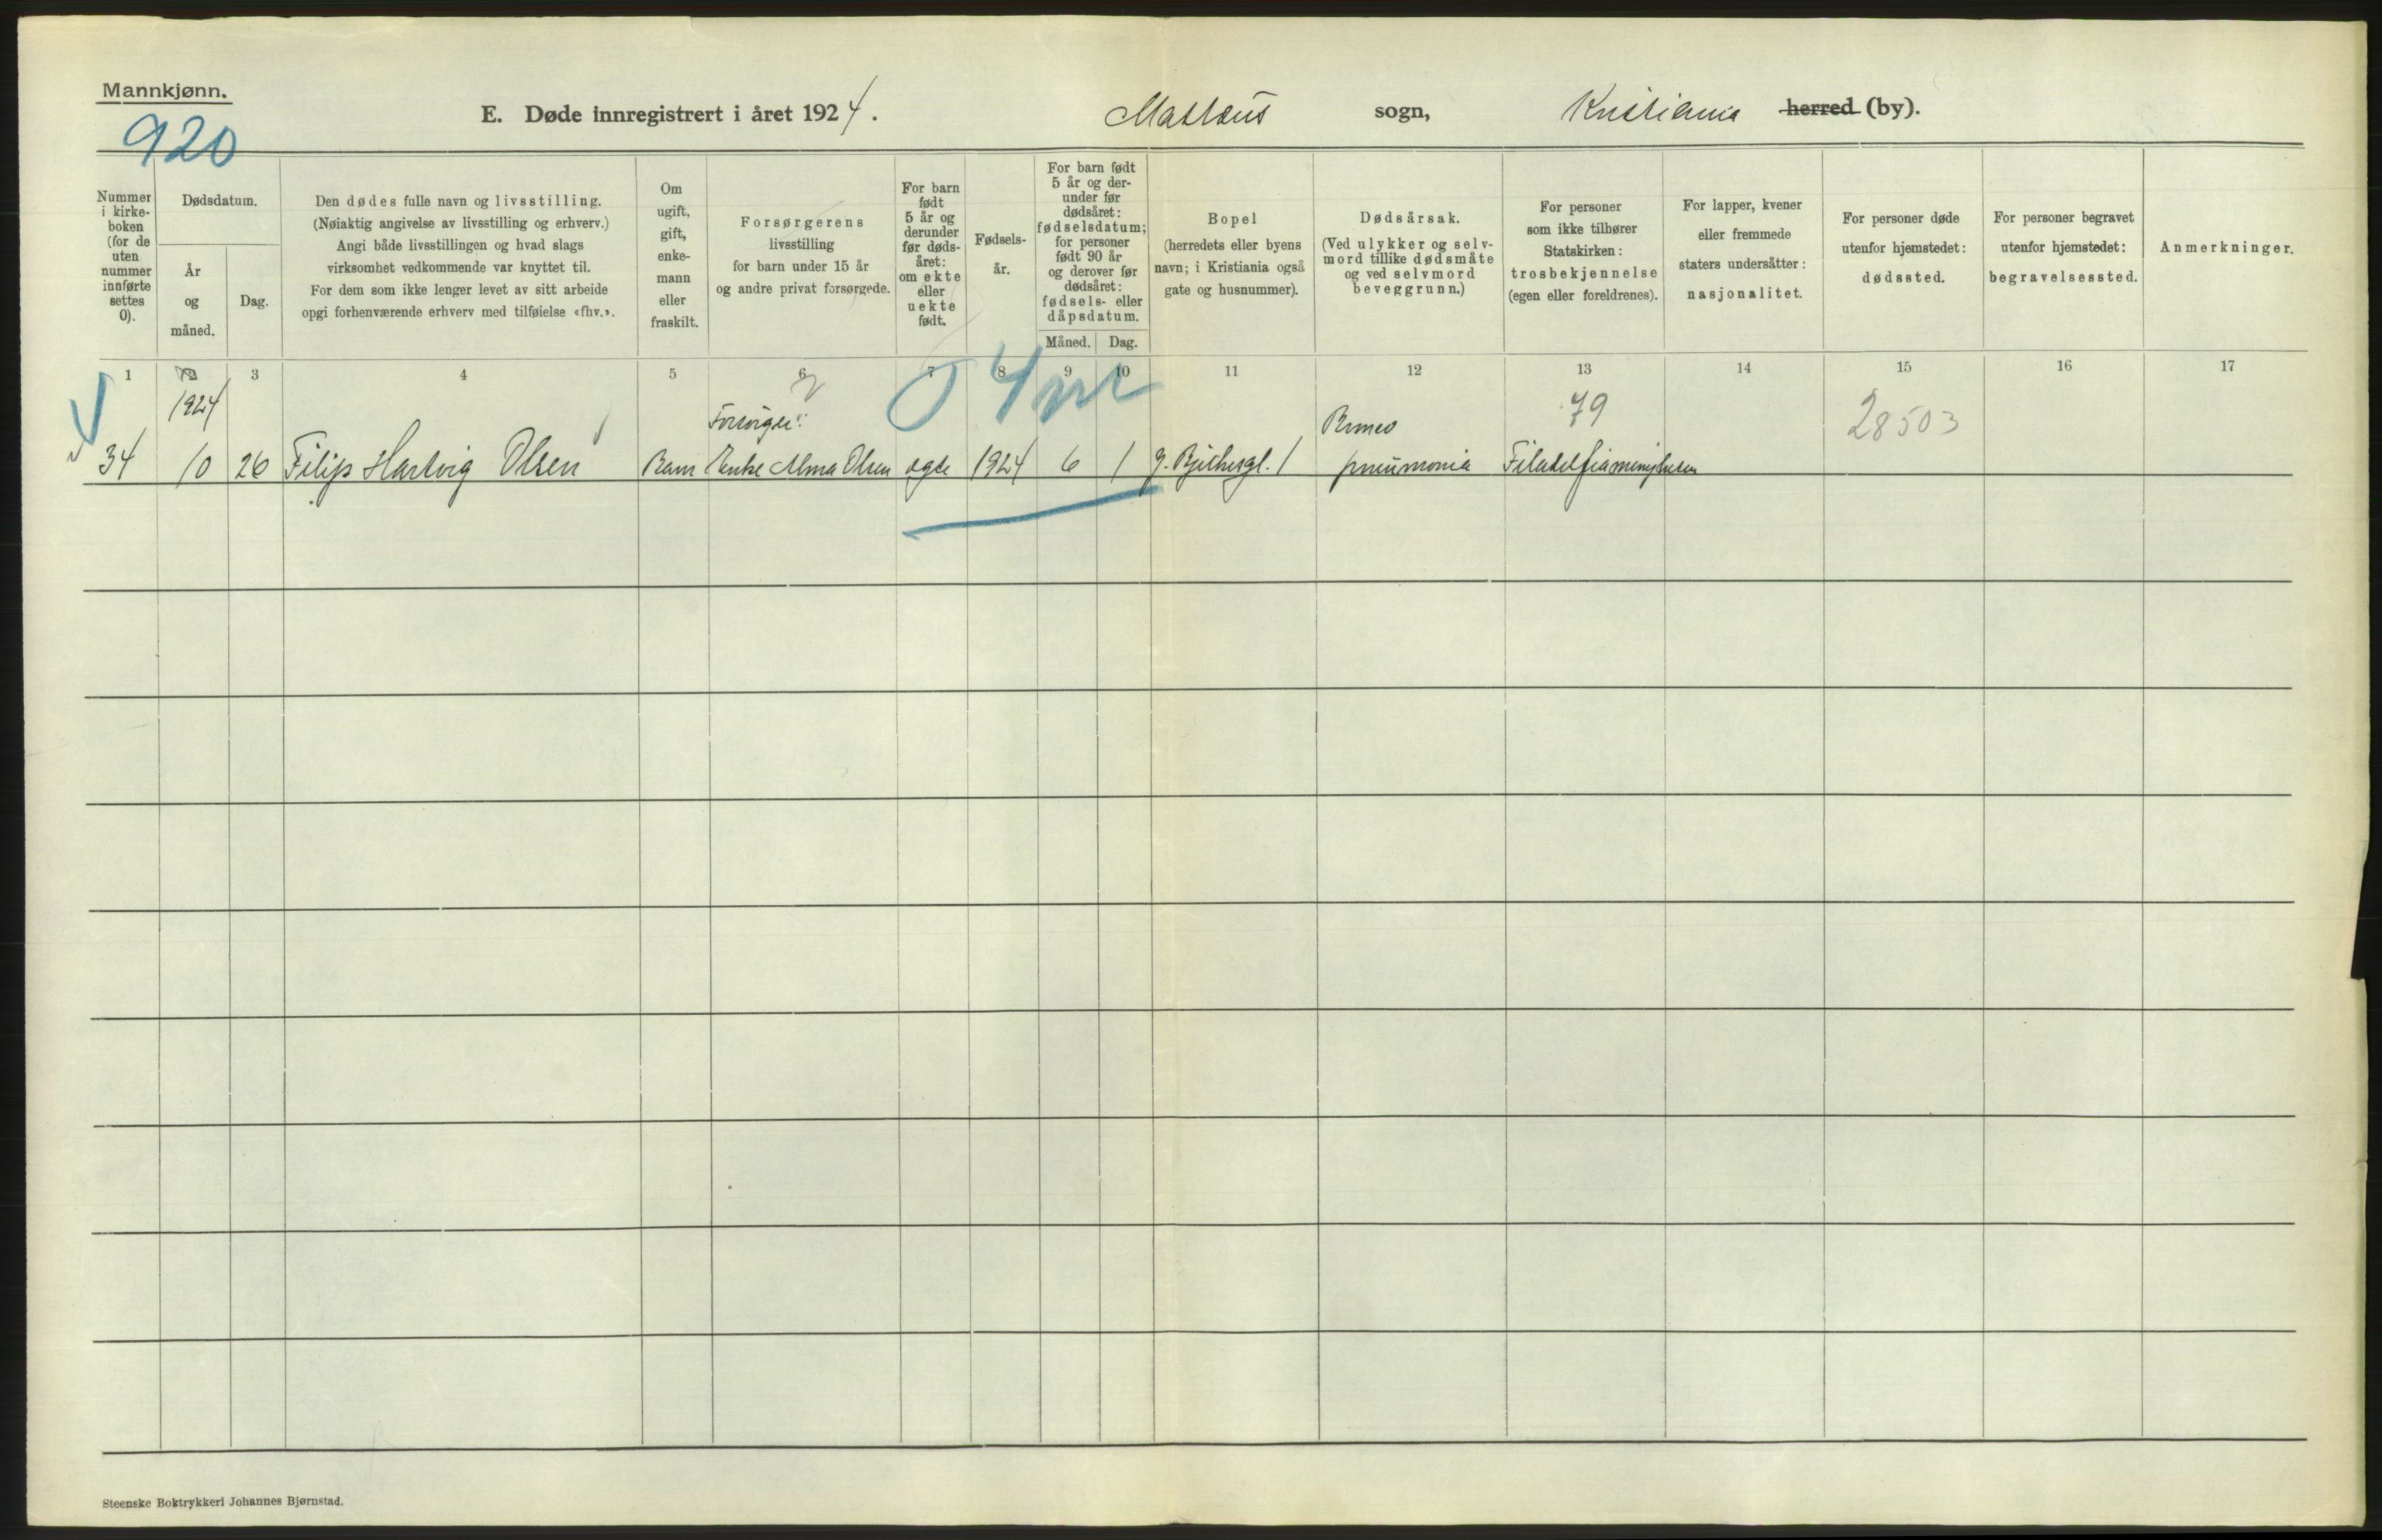 Mannkjønn.
920
E. Døde innregistrert i året 1924.
Mattæus sogn,
Kristiania herred (by).
Nummer
i kirke-
boken
(for de
uten
nummer
innførte
settes
0).
Dødsdatum.
År
og
måned.
Dag.
Den dødes fulle navn og livsstilling.
(Nøiaktig angivelse av livsstilling og erhverv.)
Angi både livsstillingen og hvad slags
virksomhet vedkommende var knyttet til.
For dem som ikke lenger levet av sitt arbeide
opgi forhenværende erhverv med tilføielse «fhv.».
Om
ugift,
gift,
enke-
mann
eller
fraskilt.
Forsørgerens
livsstilling
for barn under 15 år
og andre privat forsørgede.
For barn
født
5 år og
derunder
før døds-
året:
om ekte
eller
uekte
født.
Fødsels-
år.
For barn født
5 år og der-
under før
dødsåret:
fødselsdatum;
for personer
født 90 år
og derover før
dødsåret:
fødsels- eller
dåpsdatum.
Måned.
Dag.
Bopel
(herredets eller byens
navn; i Kristiania også
gate og husnummer).
Dødsårsak.
(Ved ulykker og selv-
mord tillike dødsmåte
og ved selvmord
beveggrunn.)
For personer
som ikke tilhører
Statskirken:
trosbekjennelse
(egen eller foreldrenes).
For lapper, kvener
eller fremmede
staters undersåtter:
nasjonalitet.
For personer døde
utenfor hjemstedet:
dødssted.
For personer begravet
utenfor hjemstedet:
begravelsessted.
Anmerkninger.
1 2 3 4 5 6 7 8 9 10 11 12 13 14 15 16 17
1924
04m
79
28503
Forsørger:
34 10 26 Filip Hartvig Olsen Barn Enke Alma Olsen ægte 1924 6 1 1 pneumonia Filadelfiamenigheten
Steenske Boktrykkeri Johannes Bjørnstad.